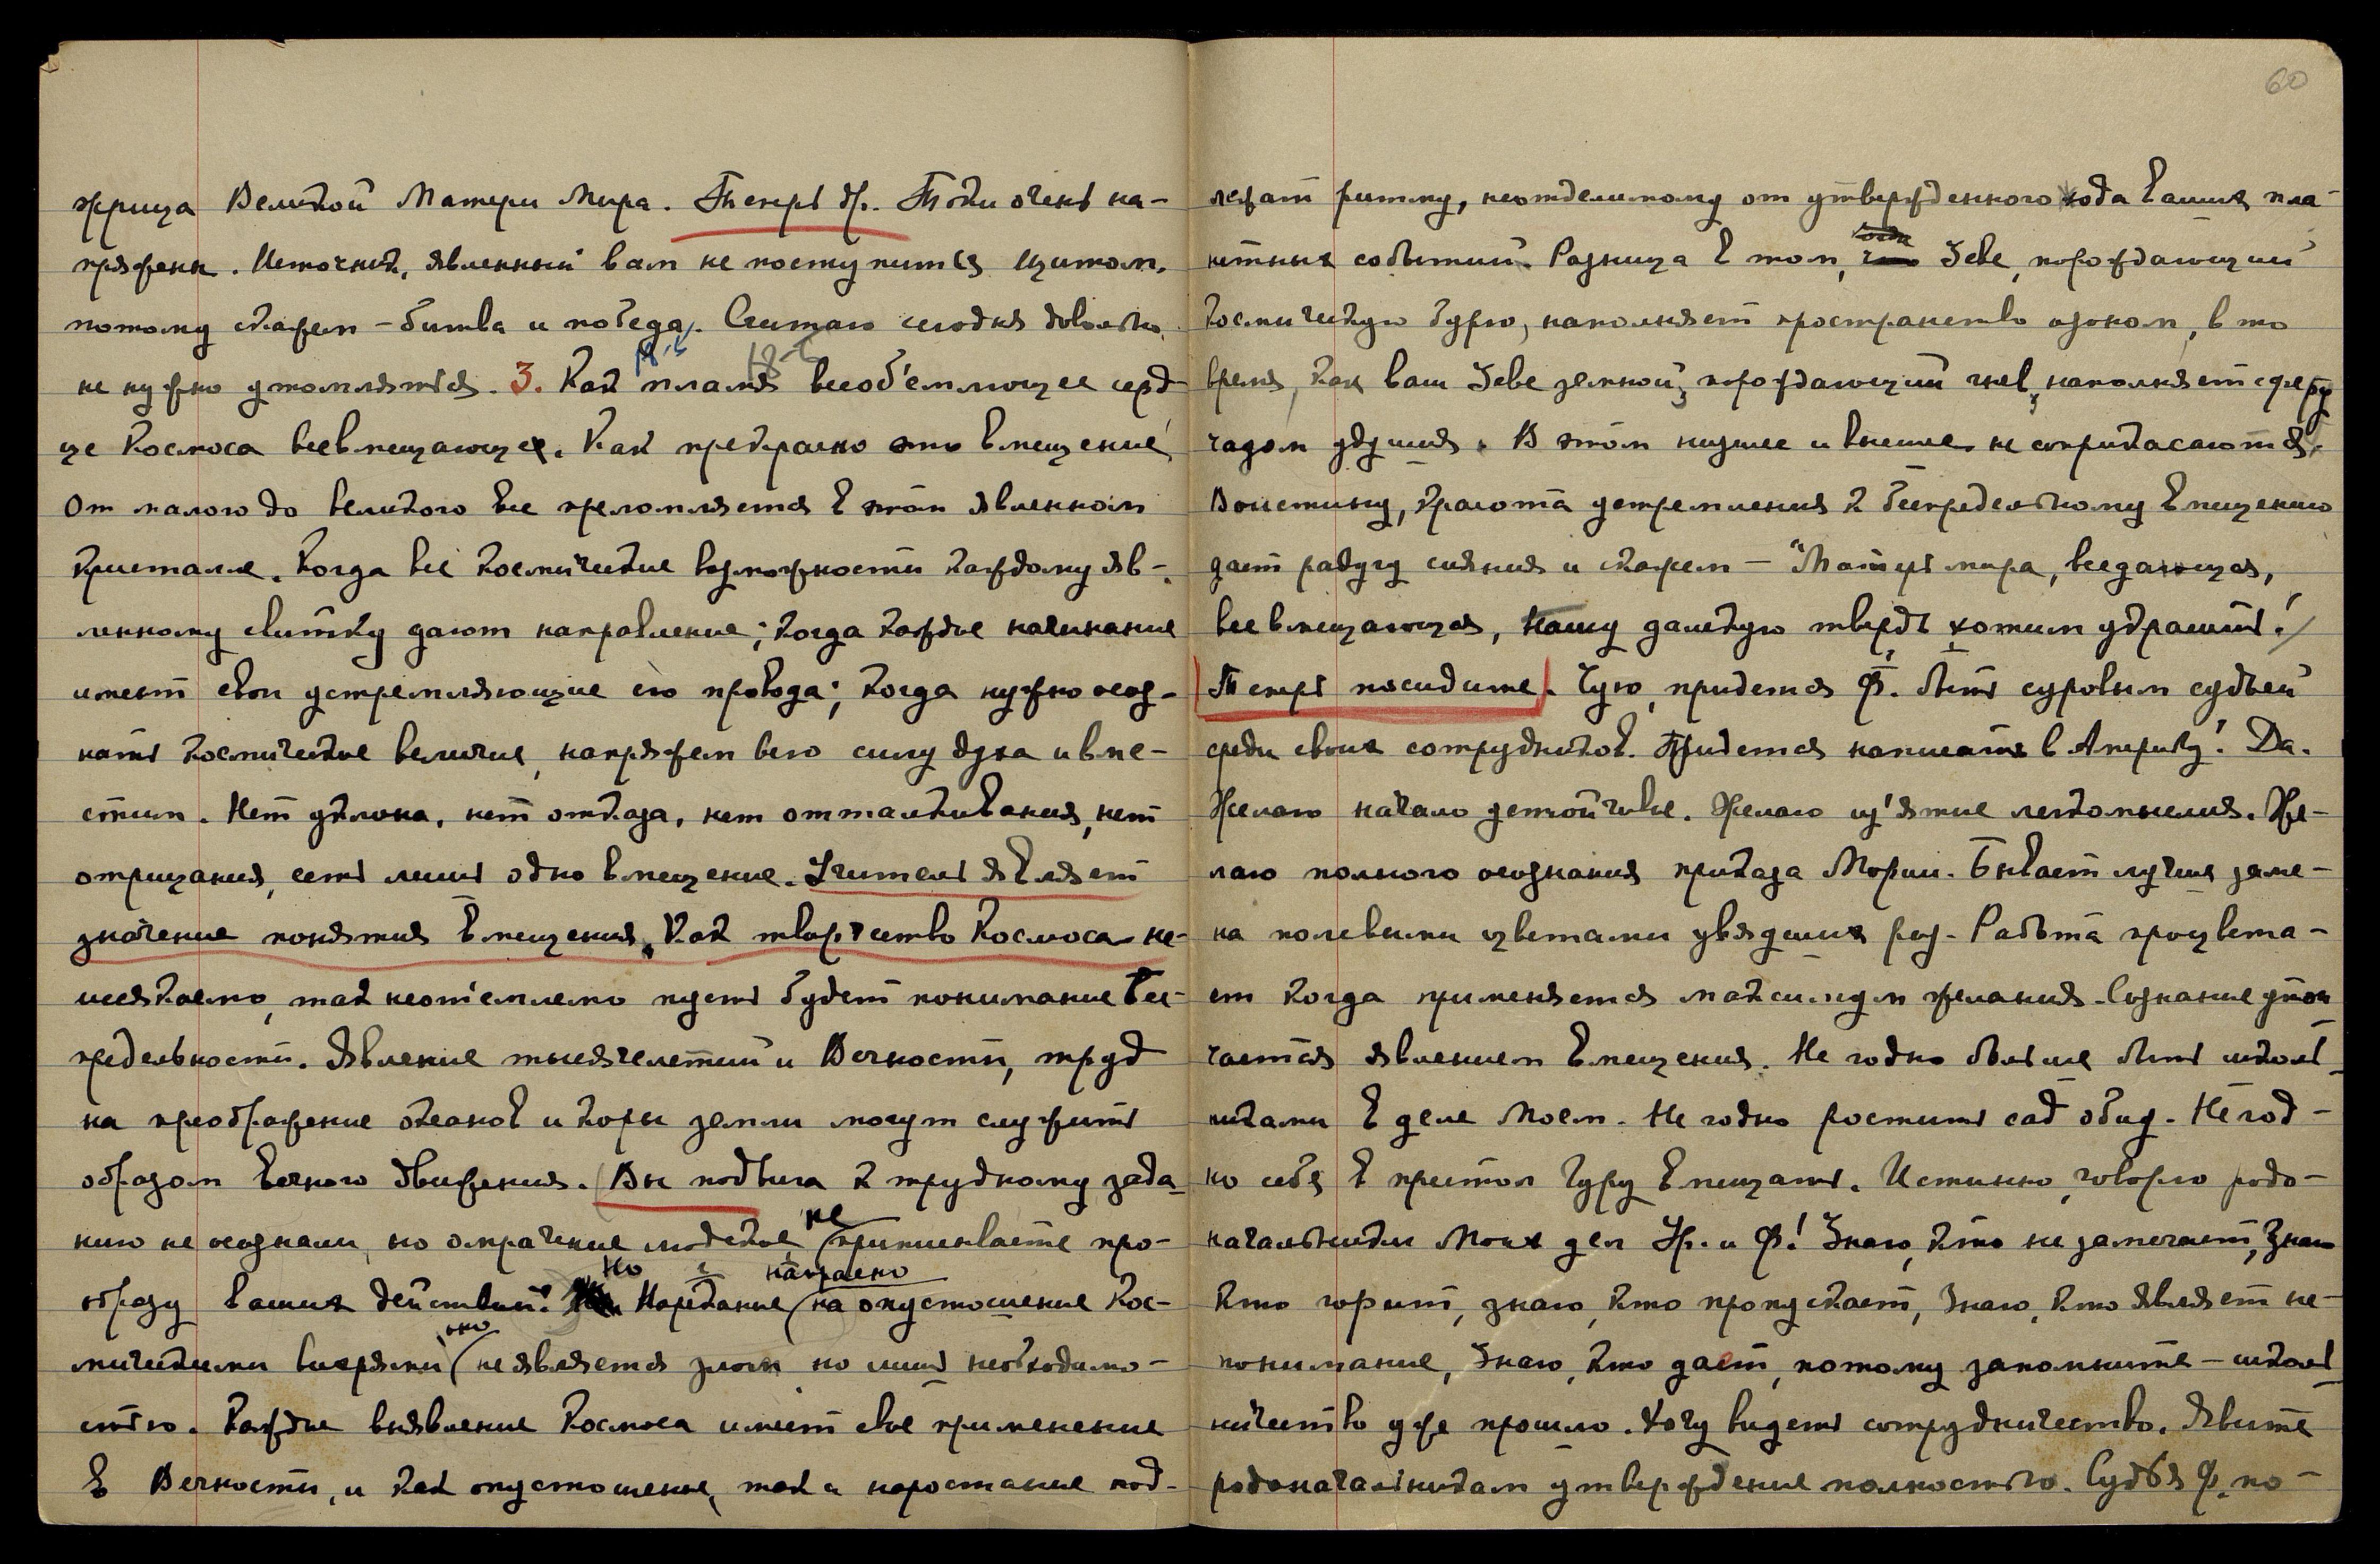 жрица Великой Матери Мира. Теперь др. Токи очень на-
пряжены. Источник, явленный вам не поступится щитом,
потому скажем – битва и победа. Считаю сегодня довольно,
не нужно утомляться. 3. Как пламя всеоб'емлющее серд-
це Космоса всевмещающее. Как прекрасно это вмещение,
От малого до великого все преломляется в этом явленном
кристалле. Когда все космические возможности каждому яв-
ленному свитку дают направление; когда каждое начинание
имеет свои устремляющие его провода; когда нужно осоз-
нать космическое величие, напряжем всю силу духа и вме-
стим. Нет уклона, нет отказа, нет отталкивания, нет
отрицания, есть лишь одно вмещение. Учитель являет
значение понятия вмещения. Как творчество Космоса не-
иссякаемо, так неот'емлемо пусть будет понимание Бес-
предельности. Явление тысячелетий и Вечности, труд
на преображение океанов и коры земли могут служить
образом вечного движения. Вы подвига к трудному зада-
нию не осознали, но омрачение людское не приписывайте про-
образу ваших действий. Но Нарекание напрасно на опустошение Кос-
мическими вихрями оно не является злом но лишь необходимо-
стью. Каждое выявление Космоса имеет свое применение
в Вечности, и как опустошение, так и наростание под-
60
лежат ритму, неотделимому от утвержденного хода ваших пла-
нетных событий. Разница в том, когда Зевс, порождающий
космическую бурю, наполняет пространство озоном, в то
время, как ваш Зевс земной, порождающий гнев, наполняет сферу
чадом удушия. В этом низшее и высшее не соприкасаются.
Воистину, красота устремления к беспредельному вмещению
дает радугу сияния и скажем – "Матерь мира, вседающая,
всевмещающая, Нашу далекую твердь хотим украсить!
Теперь посидите. Чую, придется Ф. быть суровым судьей
среди своих сотрудников. Придется написать в Америку! Да.
Желаю начало устойчивое. Желаю из'ятие легкомыслия. Же-
лаю полного осознания приказа Мории. Бывает лучше заме-
на полевыми цветами увядших роз. Работа процвета-
ет когда применяется максимум желания. Сознание утон
чается явлением вмещения. Не годно больше быть школь-
никами в деле Моем. Не годно ростить сад обид. Не год-
но себя в престол Гуру вмещать. Истинно, говорю родо-
начальники Моих дел Ур. и Ф! Знаю, кто не замечает, Знаю
кто горит, знаю, кто пропускает, Знаю, кто являет не-
понимание, Знаю, кто дает, потому запомните – школь-
ничество уже прошло. Хочу видеть сотрудничество. Явите
родоначальникам утверждение полностью. Судья Ф. по-